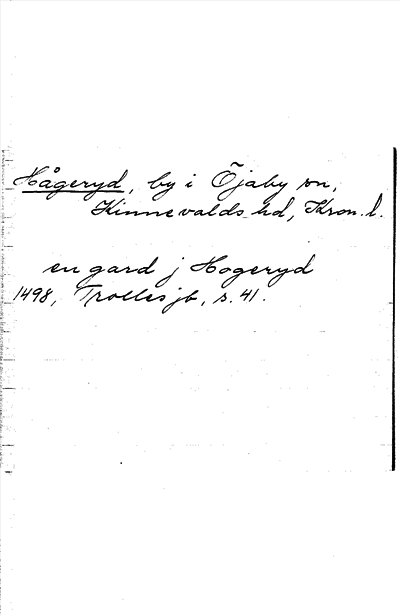 Hågeryd, by i Öjaby sn,
Kinnevalds hd, Kron. l.
en gard j Hogeryd
1498, Trolles jb, s. 41.